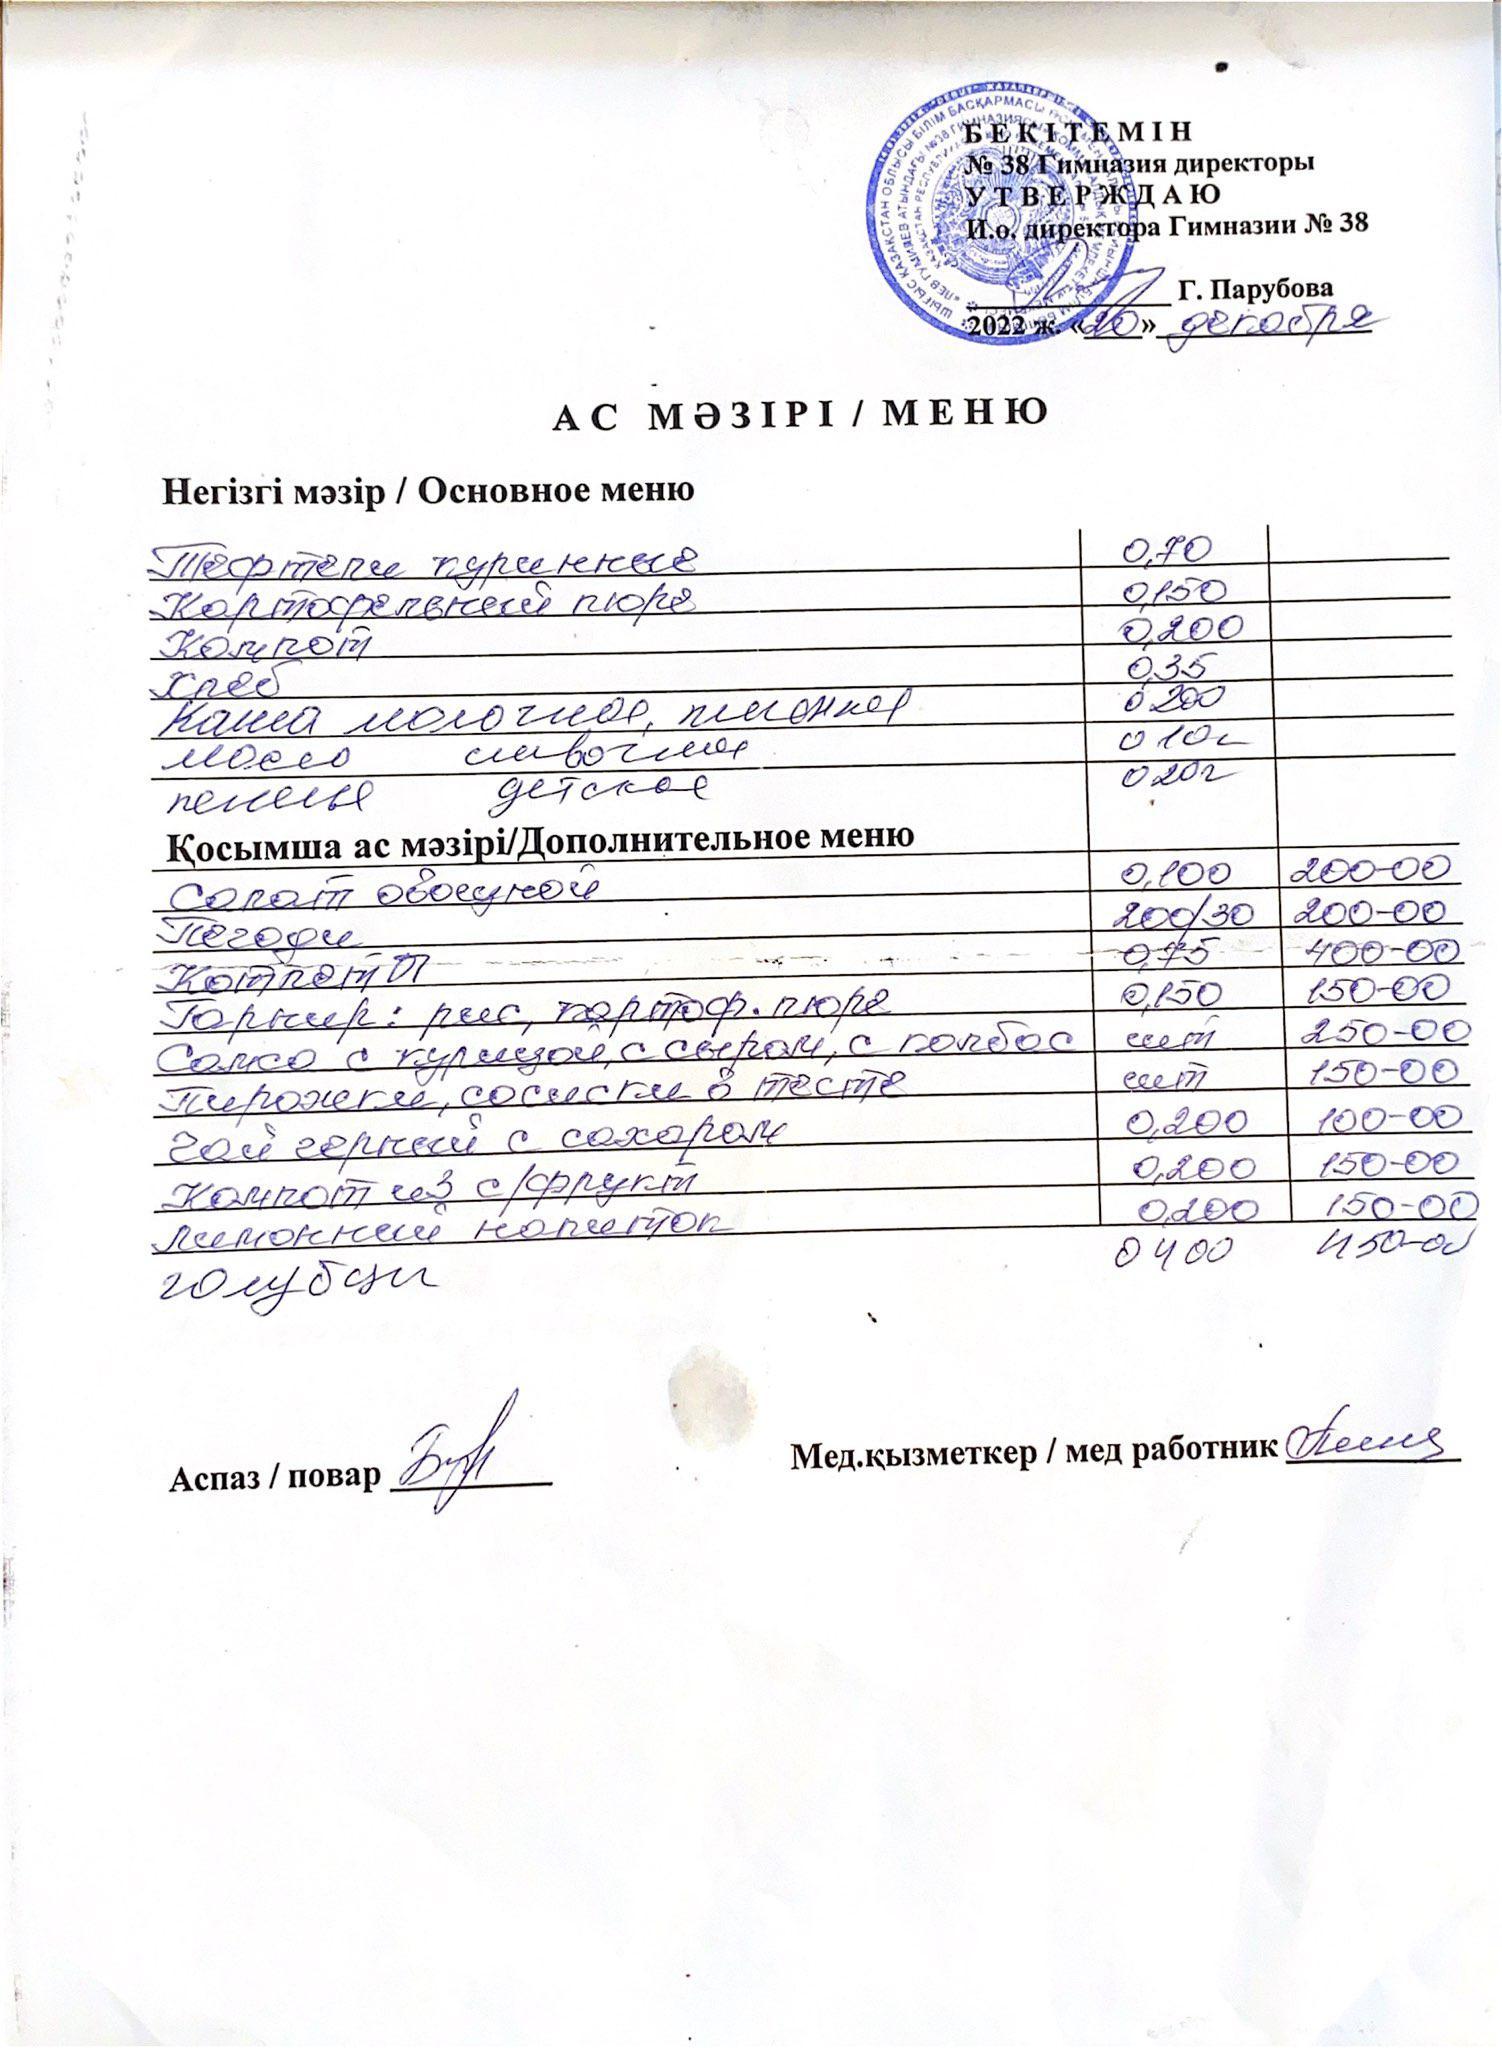 БЕКІТЕМІН
№ 38 Гимназия директоры
УТВЕРЖДАЮ
И.о. директора Гимназии № 38
Г. Парубова
2022 ж. «20» декабря
АС МӘЗІРІ / МЕНЮ
Негізгі мәзір / Основное меню
Тефтели куринные 0,70
Картофельный пюре 0,150
Компот 0,200
Хлеб 0,35
Каша молочная, пшенная 0 200
масло сливочное 0 10г
печенье детское 0 20г
Қосымша ас мәзірі/Дополнительное меню
Салат овощной 0,100 200-00
200/30 200-00
0,75 400-00
Гарнир: рис, картоф. пюре 0,150 150-00
Самса с курицой, с сыром, с колбас шт 250-00
Пирожки, сосиски в тесте шт 150-00
Чай черный с сахаром 0,200 100-00
Компот из с/фрукт 0,200 150-00
Лимонный напиток 0,200 150-00
голубцы 0 400 450-00
Аспаз / повар
Мед.қызметкер / мед работник